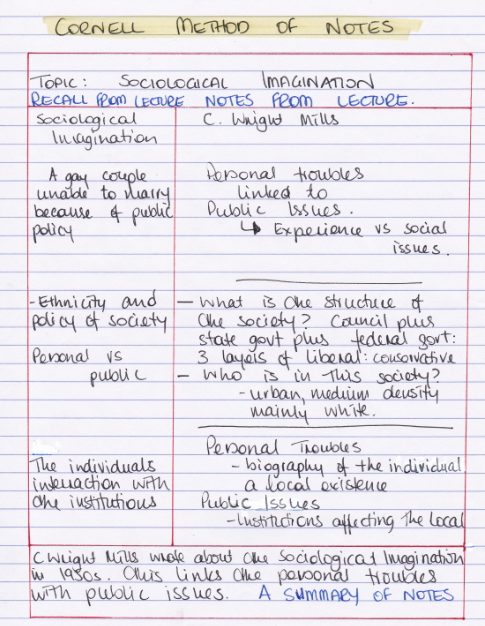 CORNELL METHOD OF NOTES
TOPIC: SOCIOLOGICAL IMAGINATION
RECALL FROM LECTURE NOTES FROM LECTURE.
Sociological
Imagination
C. Wright Mills
A gay couple
unable to marry
because of public
policy
Personal troubles
linked to
Public Issues.
↳ Experience vs social
issues.
- Ethnicity and
policy of society
Personal vs
public
- What is the structure of
the society? Council plus
state govt plus federal govt:
3 layers of liberal: conservative
- Who is in this society?
- urban, medium density
mainly white.
The individuals
interaction with
the institutions
Personal Troubles
- biography of the individual
a local existence
Public Issues
- Institutions affecting the local
C Wright Mills wrote about the Sociological Imagination
in 1950s. This links the personal troubles
with public issues. A SUMMARY OF NOTES